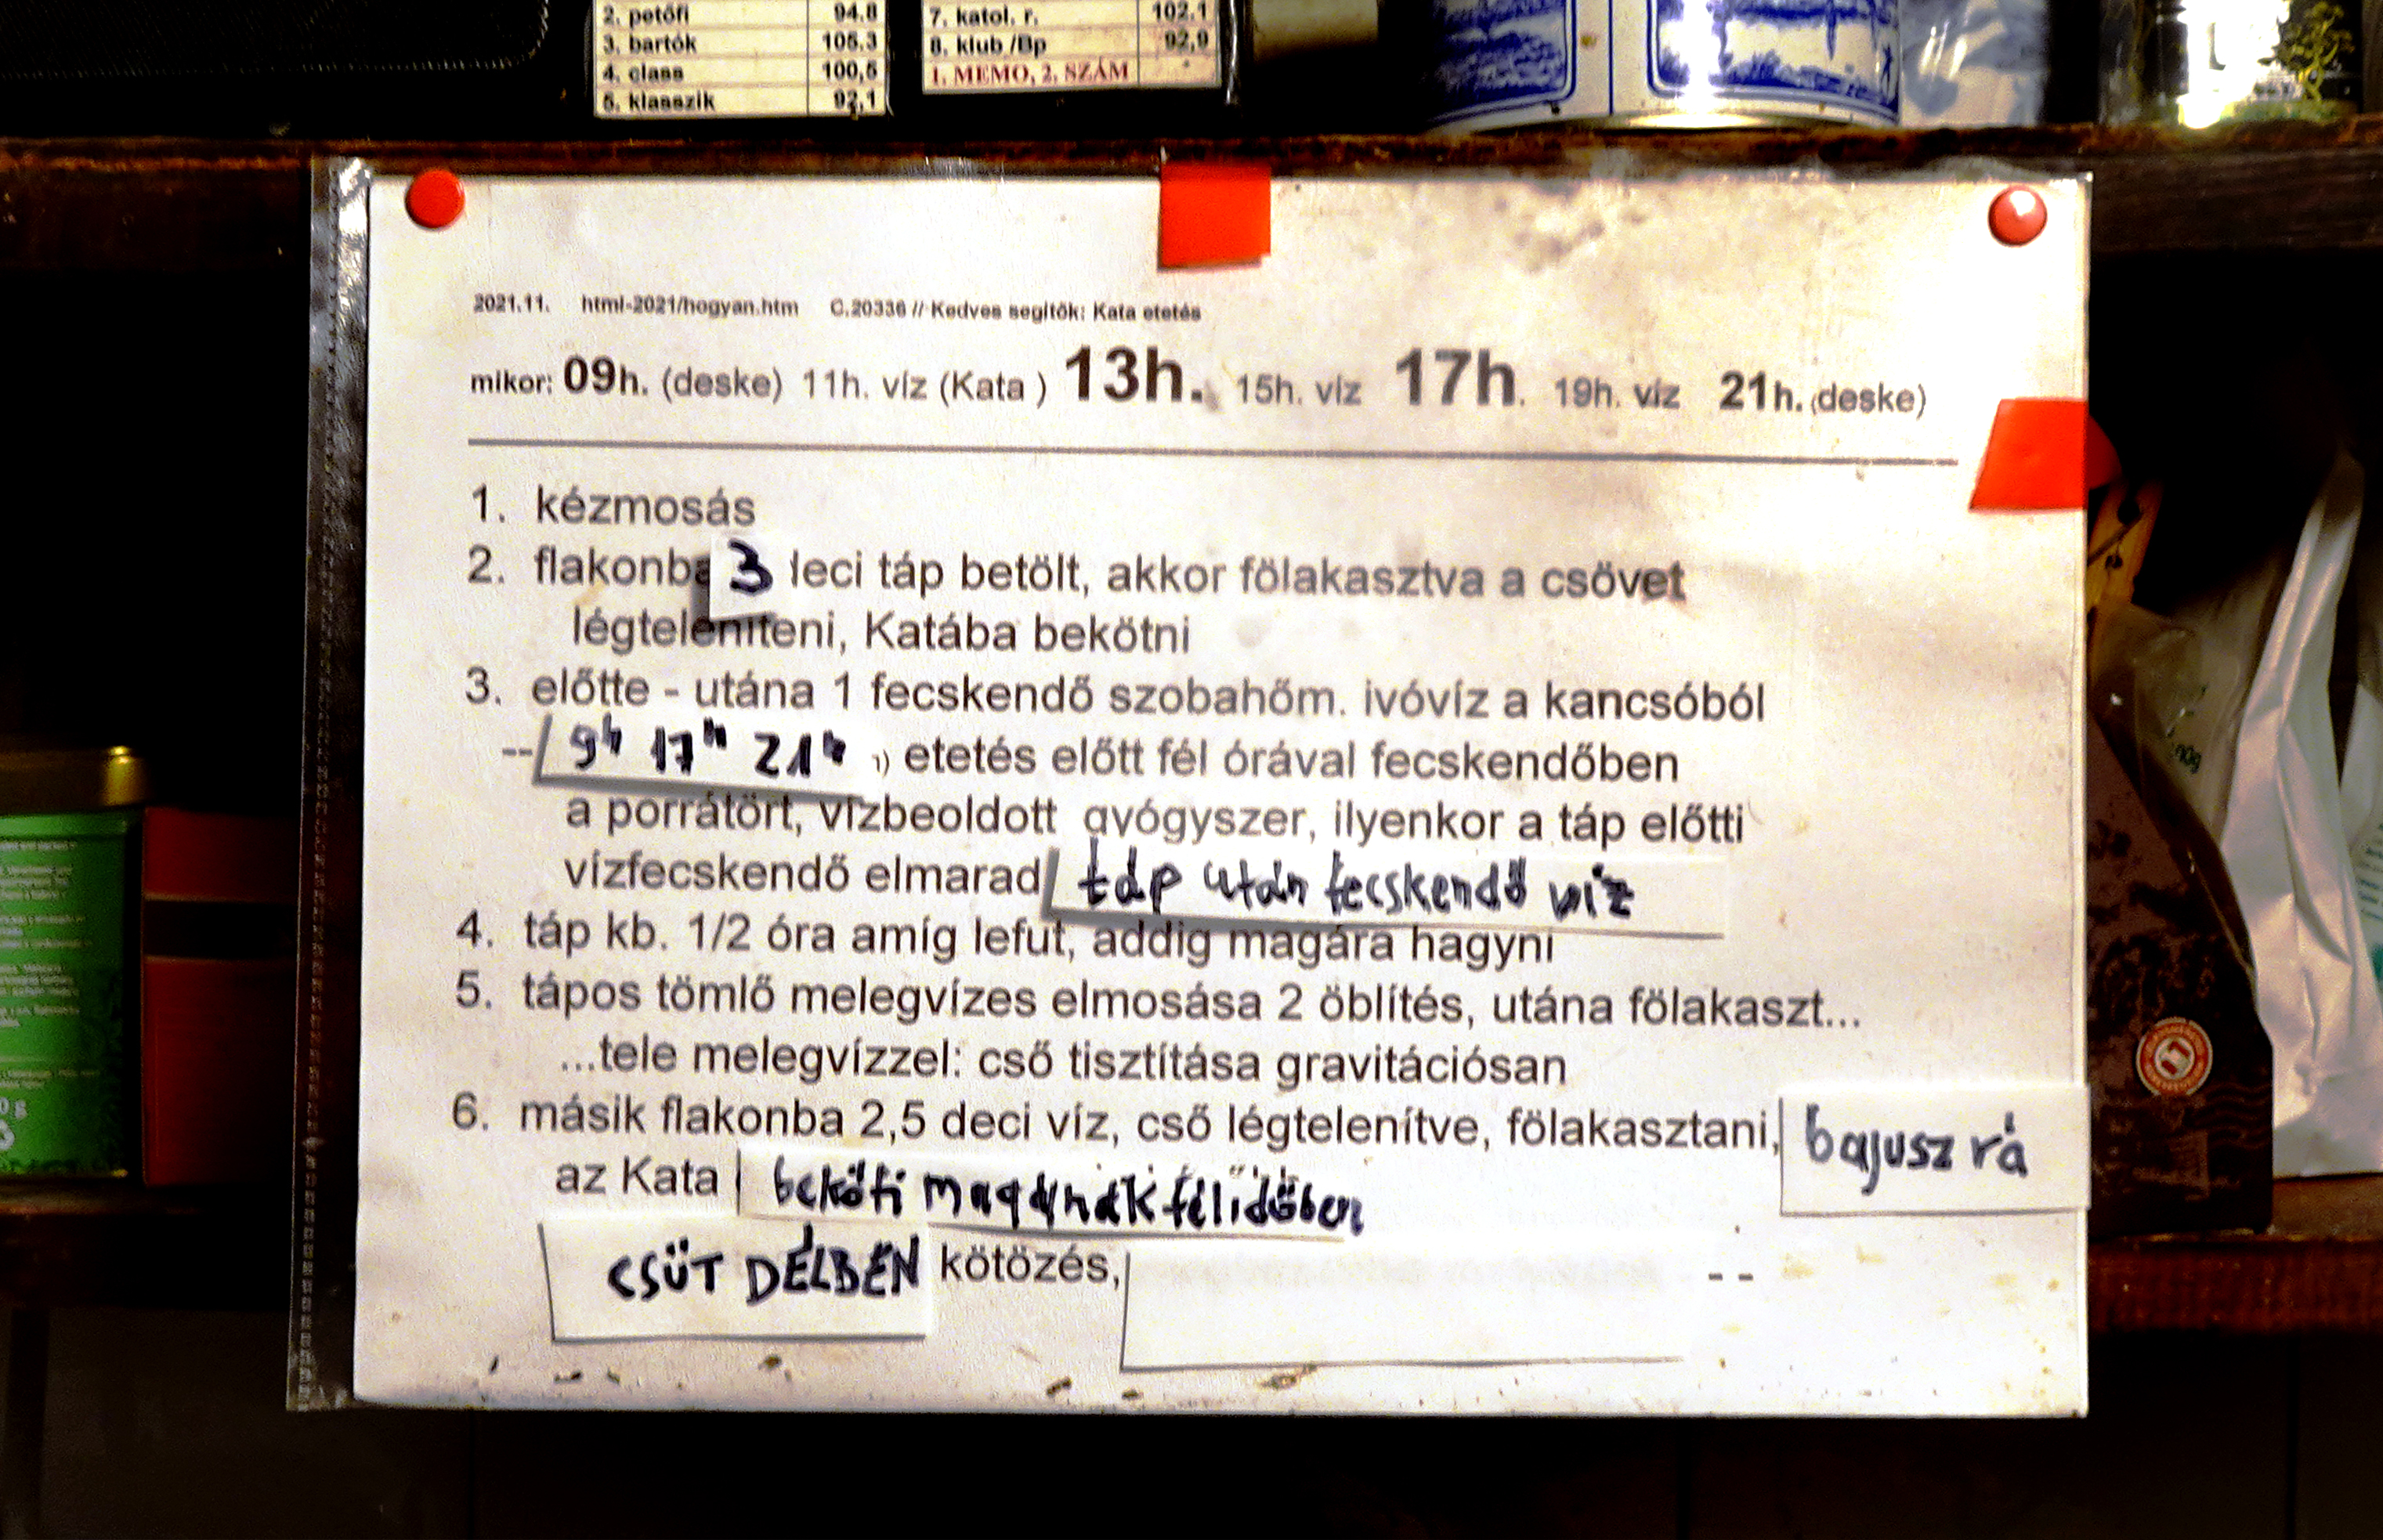 2. petőfi 94.8
3. bartók 105.3
4. class 100,5
5. klasszik 92,1
7. katol. r. 102.1
8. klub /Bp 92,9
1. MEMO, 2. SZÁM
2021.11. html-2021/hogyan.htm C.20336 // Kedves segítők: Kata etetés
mikor: 09h. (deske) 11h. víz (Kata ) 13h. 15h. víz 17h. 19h. víz 21h. (deske)
1. kézmosás
2. flakonba 3 deci táp betölt, akkor fölakasztva a csövet
légteleníteni, Katába bekötni
3. előtte - utána 1 fecskendő szobahőm. ivóvíz a kancsóból
-- 9h 17h 21h etetés előtt fél órával fecskendőben
a porrátört, vízbeoldott gyógyszer, ilyenkor a táp előtti
vízfecskendő elmarad táp után fecskendő víz
4. táp kb. 1/2 óra amíg lefut, addig magára hagyni
5. tápos tömlő melegvízes elmosása 2 öblítés, utána fölakaszt...
...tele melegvízzel: cső tisztítása gravitációsan
6. másik flakonba 2,5 deci víz, cső légtelenítve, fölakasztani, bajusz rá
az Kata beköti magának félidőben
CSÜT DÉLBEN kötözés, --